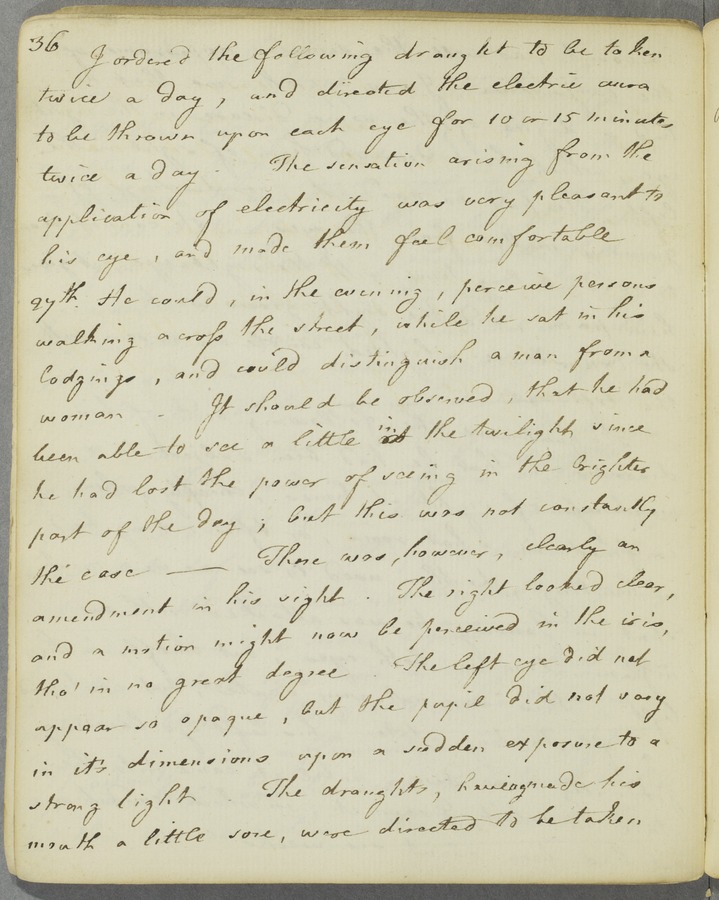 36
I ordered the following draught to be taken
twice a day, and directed the electric aura
to be thrown upon each eye for 10 or 15 minutes
twice a day. The sensation arising from the
application of electricity was very pleasant to
his eye, and made them feel comfortable
9th. He could, in the evening, perceive persons
walking across the street, while he sat in his
lodgings, and could distinguish a man from a
woman - It should be observed, that he had
been able to see a little in the twilight since
he had lost the power of seeing in the brighter
part of the day; but this was not constantly
the case — There was, however, clearly an
amendment in his sight. The right looked clear,
and a motion might now be perceived in the iris,
tho' in no great degree. The left eye did not
appear so opaque, but the pupil did not vary
in it's dimensions upon a sudden exposure to a
strong light. The draughts, having made his
mouth a little sore, were directed to be taken